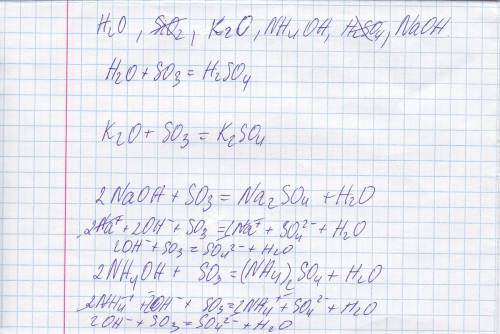 H₂O, SiO₂, K₂O, NH₄OH, H₂SO₄, NaOH.
H₂O + SO₃ = H₂SO₄
K₂O + SO₃ = K₂SO₄
2NaOH + SO₃ = Na₂SO₄ + H₂O
2Na⁺ + 2OH⁻ + SO₃ = 2Na⁺ + SO₄²⁻ + H₂O
2OH⁻ + SO₃ = SO₄²⁻ + H₂O
2NH₄OH + SO₃ = (NH₄)₂SO₄ + H₂O
2NH₄⁺ + 2OH⁻ + SO₃ = 2NH₄⁺ + SO₄²⁻ + H₂O
2OH⁻ + SO₃ = SO₄²⁻ + H₂O